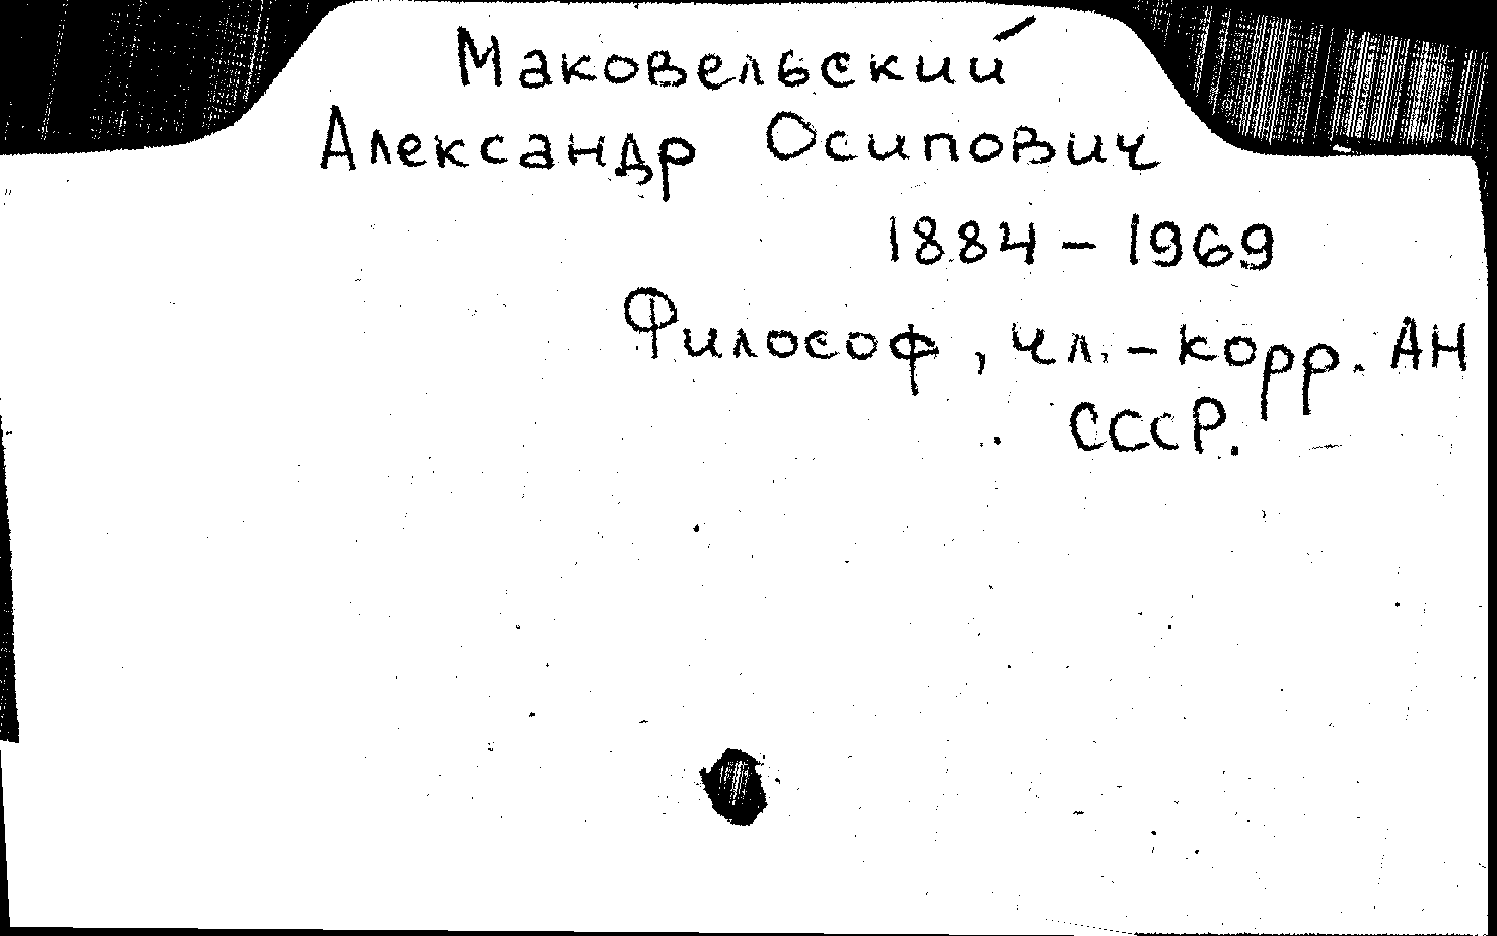 Маковельский
Александр Осипович
1884 – 1969
Философ, чл. – корр. АН
СССР.